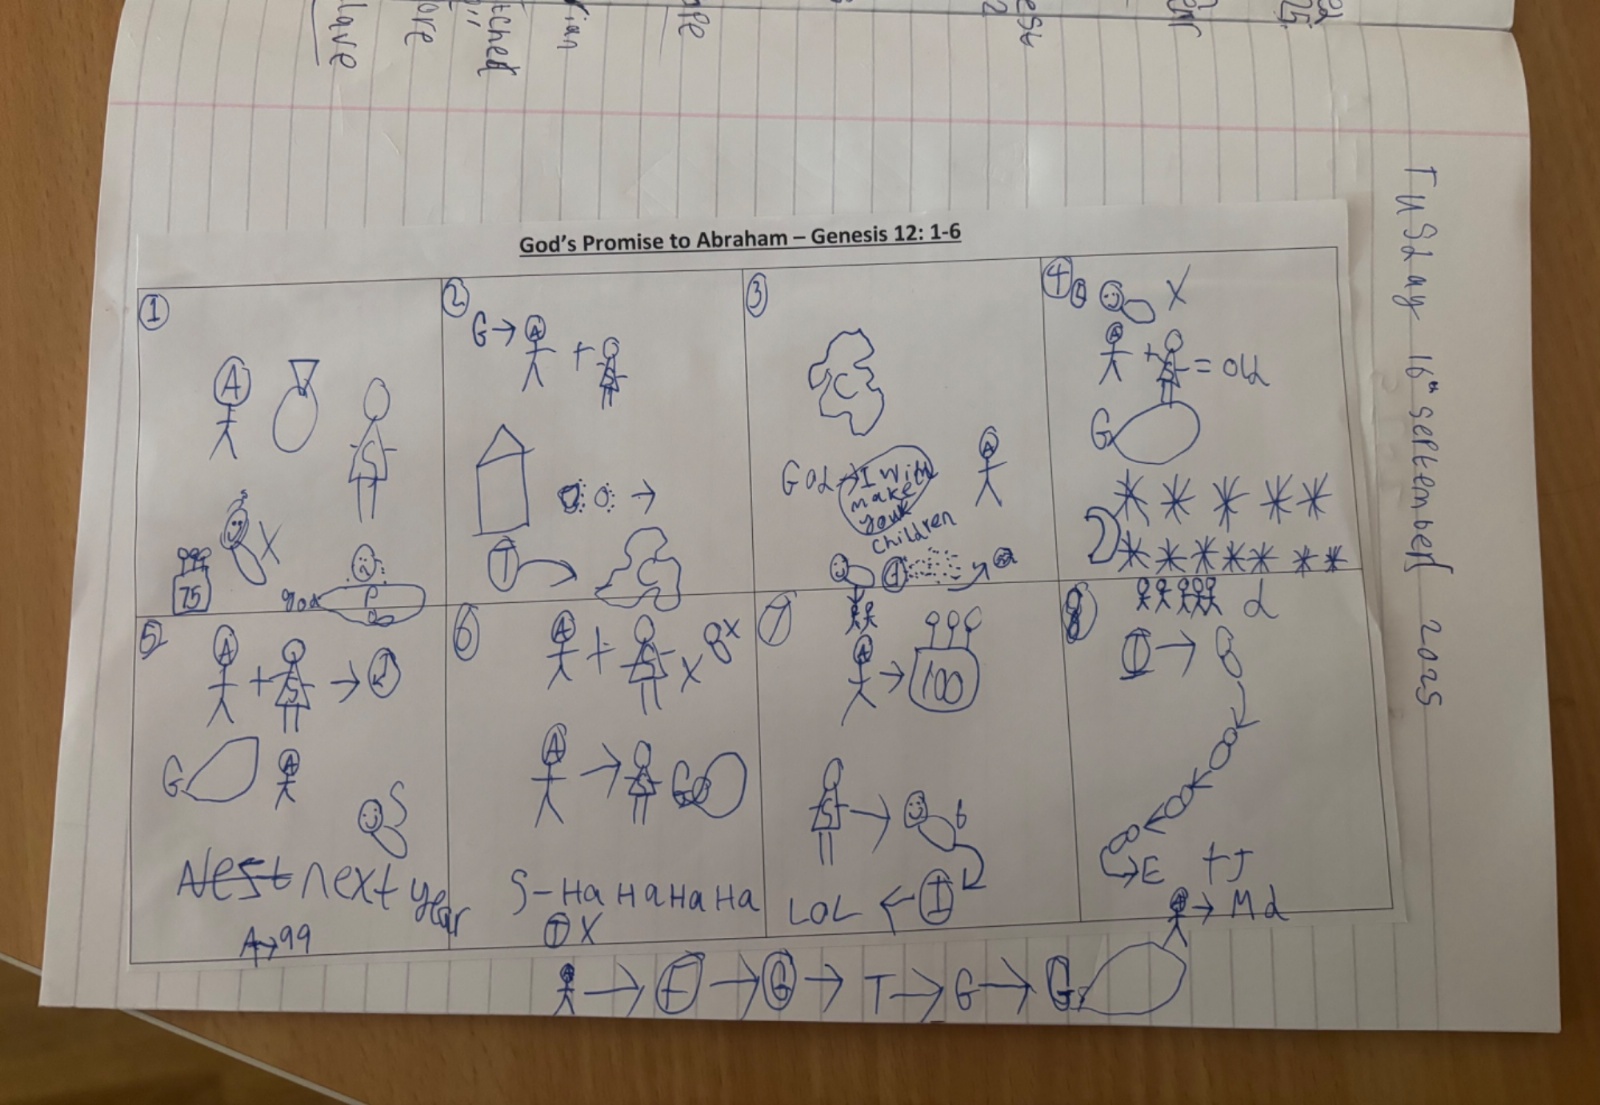 God's Promise to Abraham – Genesis 12: 1-6
Tusday 16th september 2025
1
A
S
X
75
god
2
G → A +
T
C
3
C
God → I will
make
your
children
A
4
X
A + = old
G
5
A + S →
G A
S
Nest next year
A → 99
6
A + S X X
A → S G
S - Ha Ha Ha Ha
X
7
A → 100
S → 6
LOL ← I
8
d
I →
E + J
→ Md
→ F → G → T → G → G
lave
are
tched
rian